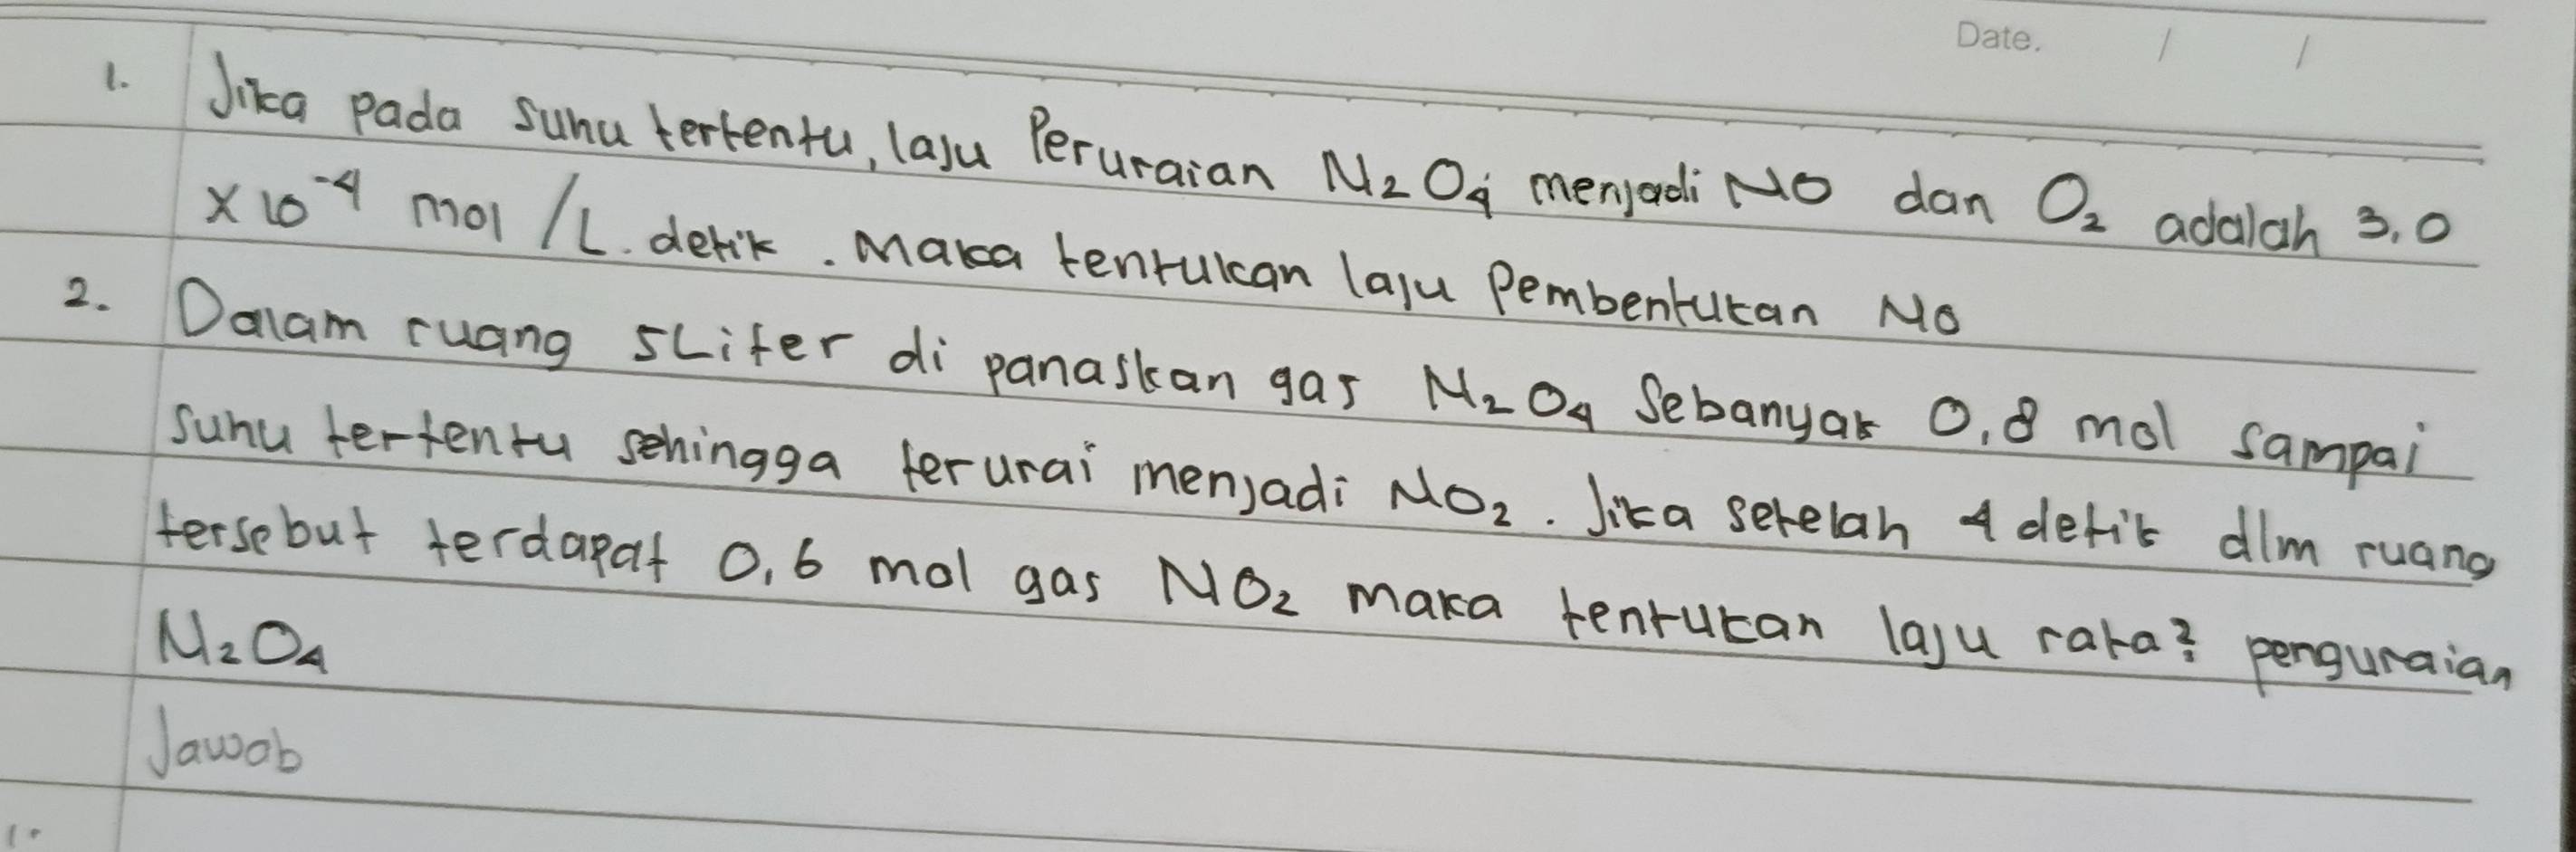 Date. / /
1. Jika pada suhu tertentu, laju Peruraian N₂O₄ menjadi NO dan O₂ adalah 3,0
x 10⁻⁴ mol /L. detik. Maka tentukan laju Pembentukan NO
2. Dalam ruang 5Liter di panaskan gas N₂O₄ Sebanyak 0,8 mol sampai
suhu tertentu sehingga terurai menjadi NO₂. Jika setelah 4 detik dlm ruang
tersebut terdapat 0,6 mol gas NO₂ maka tentukan laju rata² penguraian
N₂O₄
Jawab
1.